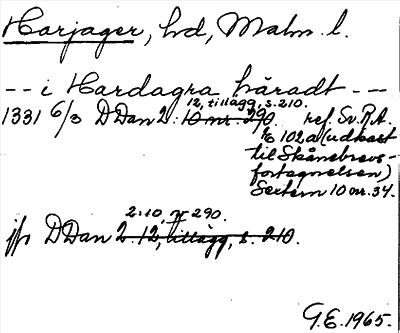 Harjager, hd, Malm. l.
-- i Hardagra häradt --
12, tillägg, s. 210.
1331 6/3 DDan 2: 10 nr. 290. ref. Sv. R.A.
E 102 a (udkast
til Skånebrevs-
fortegnelsen)
Sextern 10 nr. 34.
2:10, nr 290.
jfr DDan 2:12, tillägg, s. 210.
G.E. 1965.